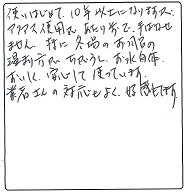 使いはじめて、10年以上になりますが、
アクアス使用で、あたり券で、手ばなせ
ません。特に冬場のお風呂の
温まり方が ちがうし、お水自体
おいしく、安心して使っています。
業者さんの対応もよく、好感もてます。